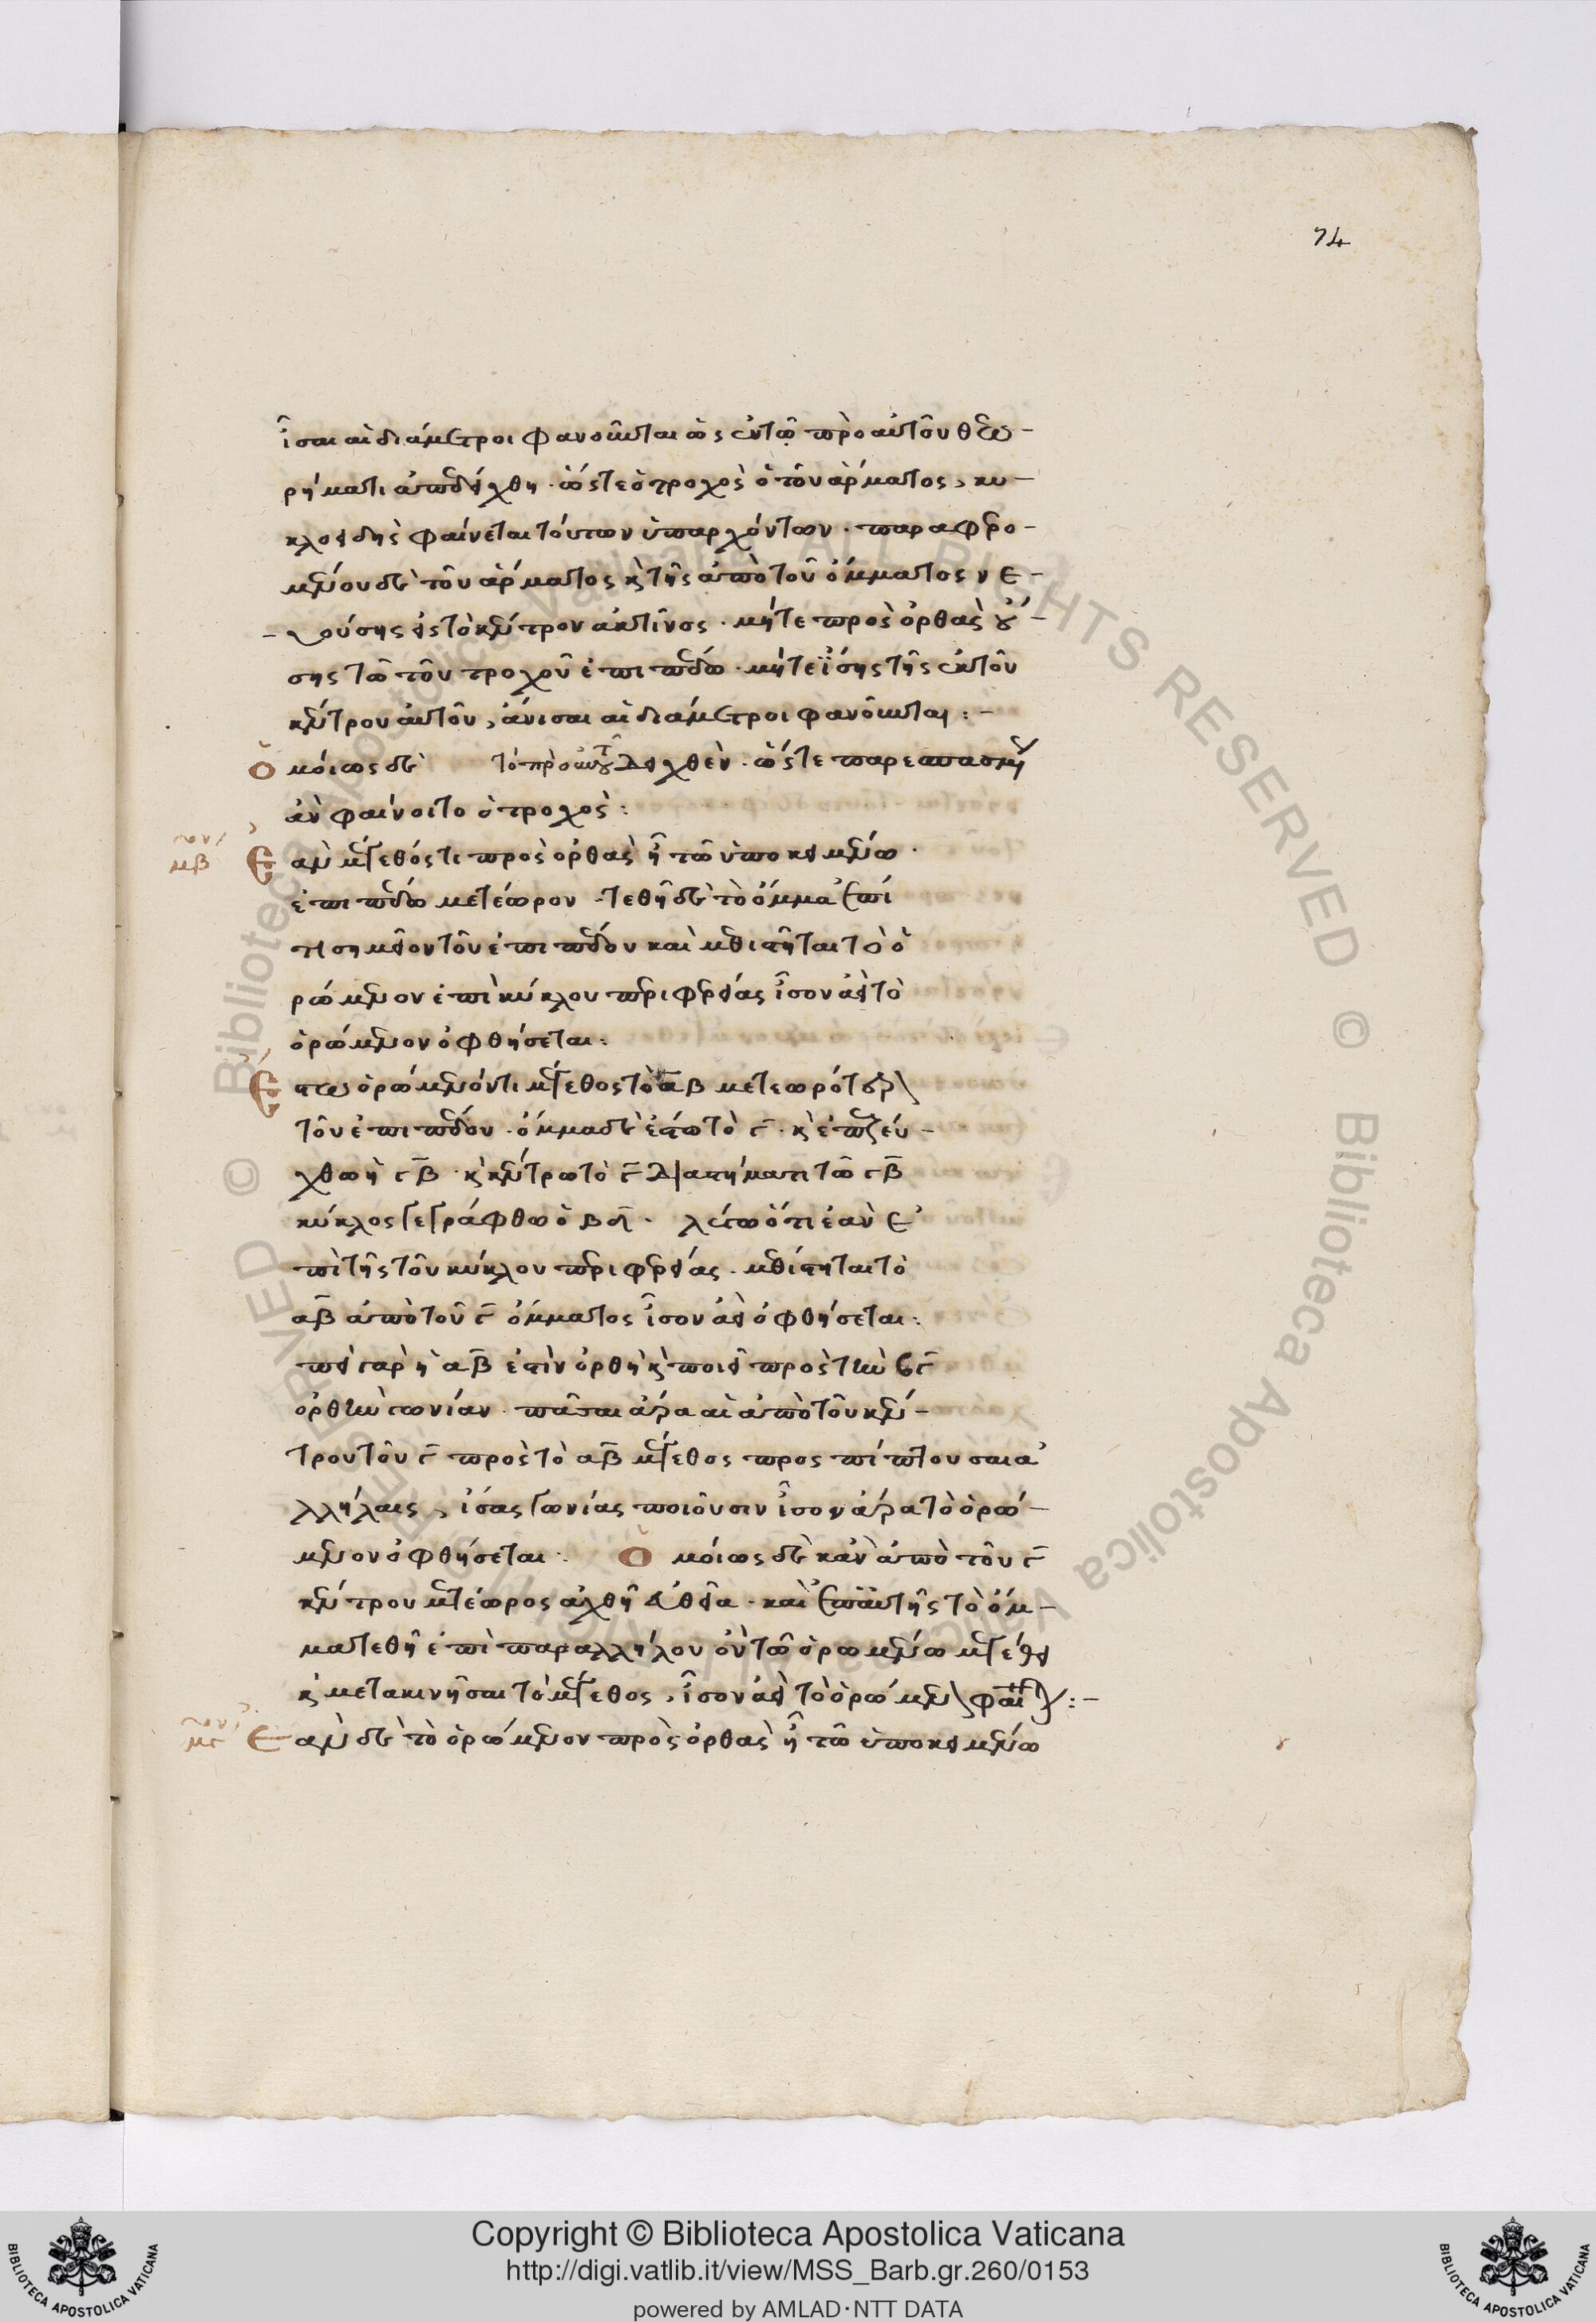 74
ἴσαι αἱ διάμετροι φανοῦνται ὡς ἐν τῷ πρὸ αὐτοῦ θεω-
ρήματι ἀπεδείχθη · ὥστε ὁ τροχὸς ὁ τοῦ ἅρματος, κυ-
κλοειδὴς φαίνεται τούτων ὑπαρχόντων · παραφερο-
μένου δὲ τοῦ ἅρματος κ τῆς ἀπὸ τοῦ ὄμματος νε-
-χούσης εἰς τὸ κέντρον ἀκτῖνος · μήτε πρὸς ὀρθὰς οὔ-
σης τῶ τοῦ τροχοῦ ἐπιπέδω · μήτε ἴσης τῆς ἐκ τοῦ
κέντρου αὐτοῦ, ἄνισαι αἱ διάμετροι φανοῦνται :-
Ὁμοίως δὲ τὸ πρὸ δειχθὲν · ὥστε παρεσπασμέν
ἂν φαίνοιτο ὁ τροχὸς :
μβ Ἐὰν μέγεθός τι πρὸς ὀρθὰς ἦ τῶ ὑποκειμένω ·
ἐπιπέδω μετέωρον · τεθῆ δὲ τὸ ὄμμα ἐπί
τι σημεῖον τοῦ ἐπιπέδου καὶ μεθιστῆται τὸ ὁ
ρώμενον ἐπὶ κύκλου περιφερείας ἴσον ἀεὶ τὸ
ὁρώμενον ὀφθήσεται :
Ἔστω ὁρώμενόν τι μέγεθος τὸ αβ μετεωρότερ
τοῦ ἐπιπέδου · ὄμμα δὲ ἔστω τὸ γ · κ ἐπεζεύ-
χθω ἡ γβ · κ κέντρω τὸ γ διαστήματι τῶ γβ
κύκλος γεγράφθω ὁ βη · λέγω ὅτι ἐὰν ἐ
πὶ τῆς τοῦ κύκλου περιφερείας · μεθίστηται τὸ
αβ ἀπὸ τοῦ γ ὄμματος ἴσον ἀεὶ ὀφθήσεται :
πεὶ γὰρ ἡ αβ ἐστὶν ὀρθὴ κ ποιεῖ πρὸς τὴν βγ
ὀρθὴν γωνίαν · πᾶσαι ἄρα αἱ ἀπὸ τοῦ κέν-
τρου τοῦ γ πρὸς τὸ αβ μέγεθος προσπίπτουσαι ἀ
λλήλαις, ἴσας γωνίας ποιοῦσιν ἴσον ἄρα τὸ ὁρώ-
μενον ὀφθήσεται · Ὁμοίως δὲ κἂν ἀπὸ τοῦ γ
κέντρου μετέωρος ἀχθῆ εὐθεῖα · καὶ ἐπ αὐτῆς τὸ ὄμ-
μα τεθῆ ἐπὶ παραλλήλου οὐ τῶ ὁρωμένω μεγέθει
κ μετακινῆσαι τὸ μέγεθος, ἴσον ἀεὶ τὸ ὁρώμεν φαί :-
μγ Ἐὰν δὲ τὸ ὁρώμενον πρὸς ὀρθὰς ἦ τῶ ὑποκειμένω
© Biblioteca Apostolica Vaticana ALL RIGHTS RESERVED
Copyright © Biblioteca Apostolica Vaticana
http://digi.vatlib.it/view/MSS_Barb.gr.260/0153
powered by AMLAD·NTT DATA
BIBLIOTECA APOSTOLICA VATICANA
BIBLIOTECA APOSTOLICA VATICANA